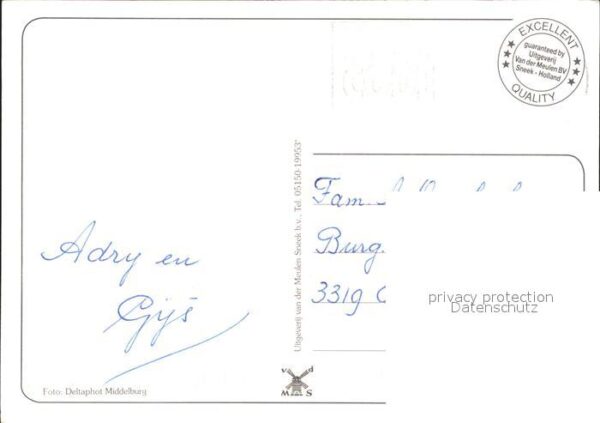 EXCELLENT
guaranteed by
Uitgeverij
Van der Meulen BV
Sneek - Holland
QUALITY
Adry en
Gijs
Uitgeverij van der Meulen Sneek b.v., Tel. 05150-19953*
Fam
Burg.
3319
privacy protection
Datenschutz
v d
M S
Foto: Deltaphot Middelburg